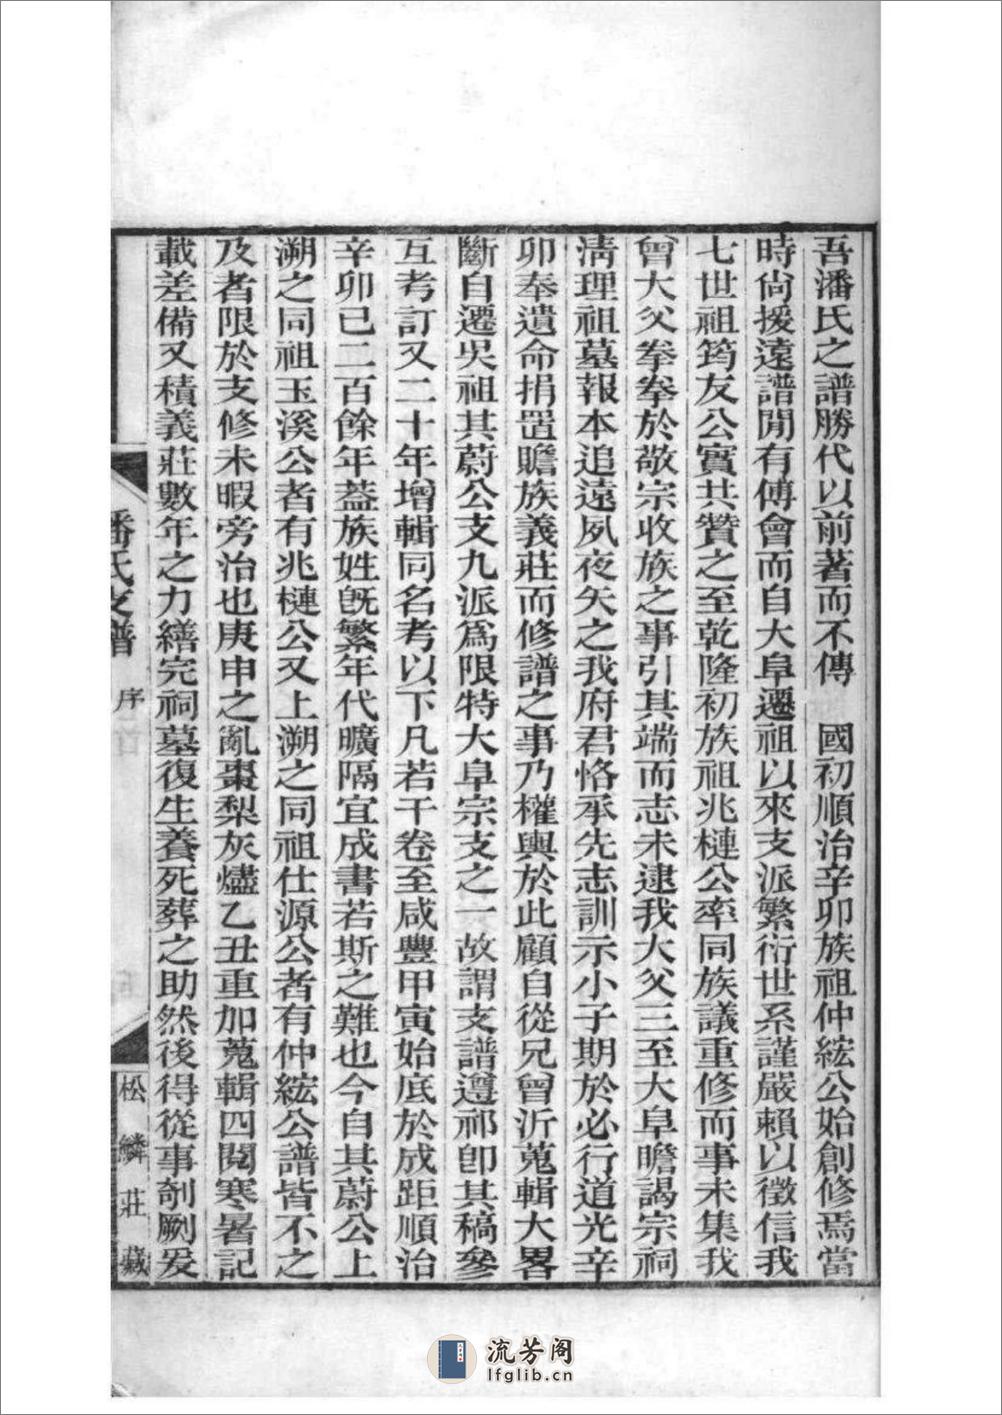 吾潘氏之譜勝代以前著而不傳　國初順治辛卯族祖仲紘公始創修焉當
時尚援遠譜閒有傅會而自大阜遷祖以來支派繁衍世系謹嚴賴以徵信我
七世祖筠友公實共贊之至乾隆初族祖兆槤公率同族議重修而事未集我
曾大父拳拳於敬宗收族之事引其端而志未逮我大父三至大阜瞻謁宗祠
清理祖墓報本追遠夙夜矢之我府君恪承先志訓示小子期於必行道光辛
卯奉遺命捐置贍族義莊而修譜之事乃權輿於此顧自從兄曾沂蒐輯大畧
斷自遷吳祖其蔚公支九派爲限特大阜宗支之一故謂支譜遵祁卽其稿參
互考訂又二十年增輯同名考以下凡若干卷至咸豐甲寅始底於成距順治
辛卯已二百餘年葢族姓旣繁年代曠隔宜成書若斯之難也今自其蔚公上
溯之同祖玉溪公者有兆槤公又上溯之同祖仕源公者有仲紘公譜皆不之
及者限於支修未暇旁治也庚申之亂棗梨灰燼乙丑重加蒐輯四閱寒暑記
載差備又積義莊數年之力繕完祠墓復生養死葬之助然後得從事剞劂爰
潘氏支譜　序
松鱗莊藏
流芳阁
lfglib.cn